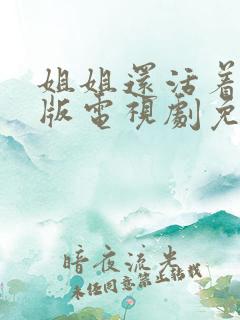 姐姐還活着
版電視劇免
暗夜流光
未经同意禁止转载